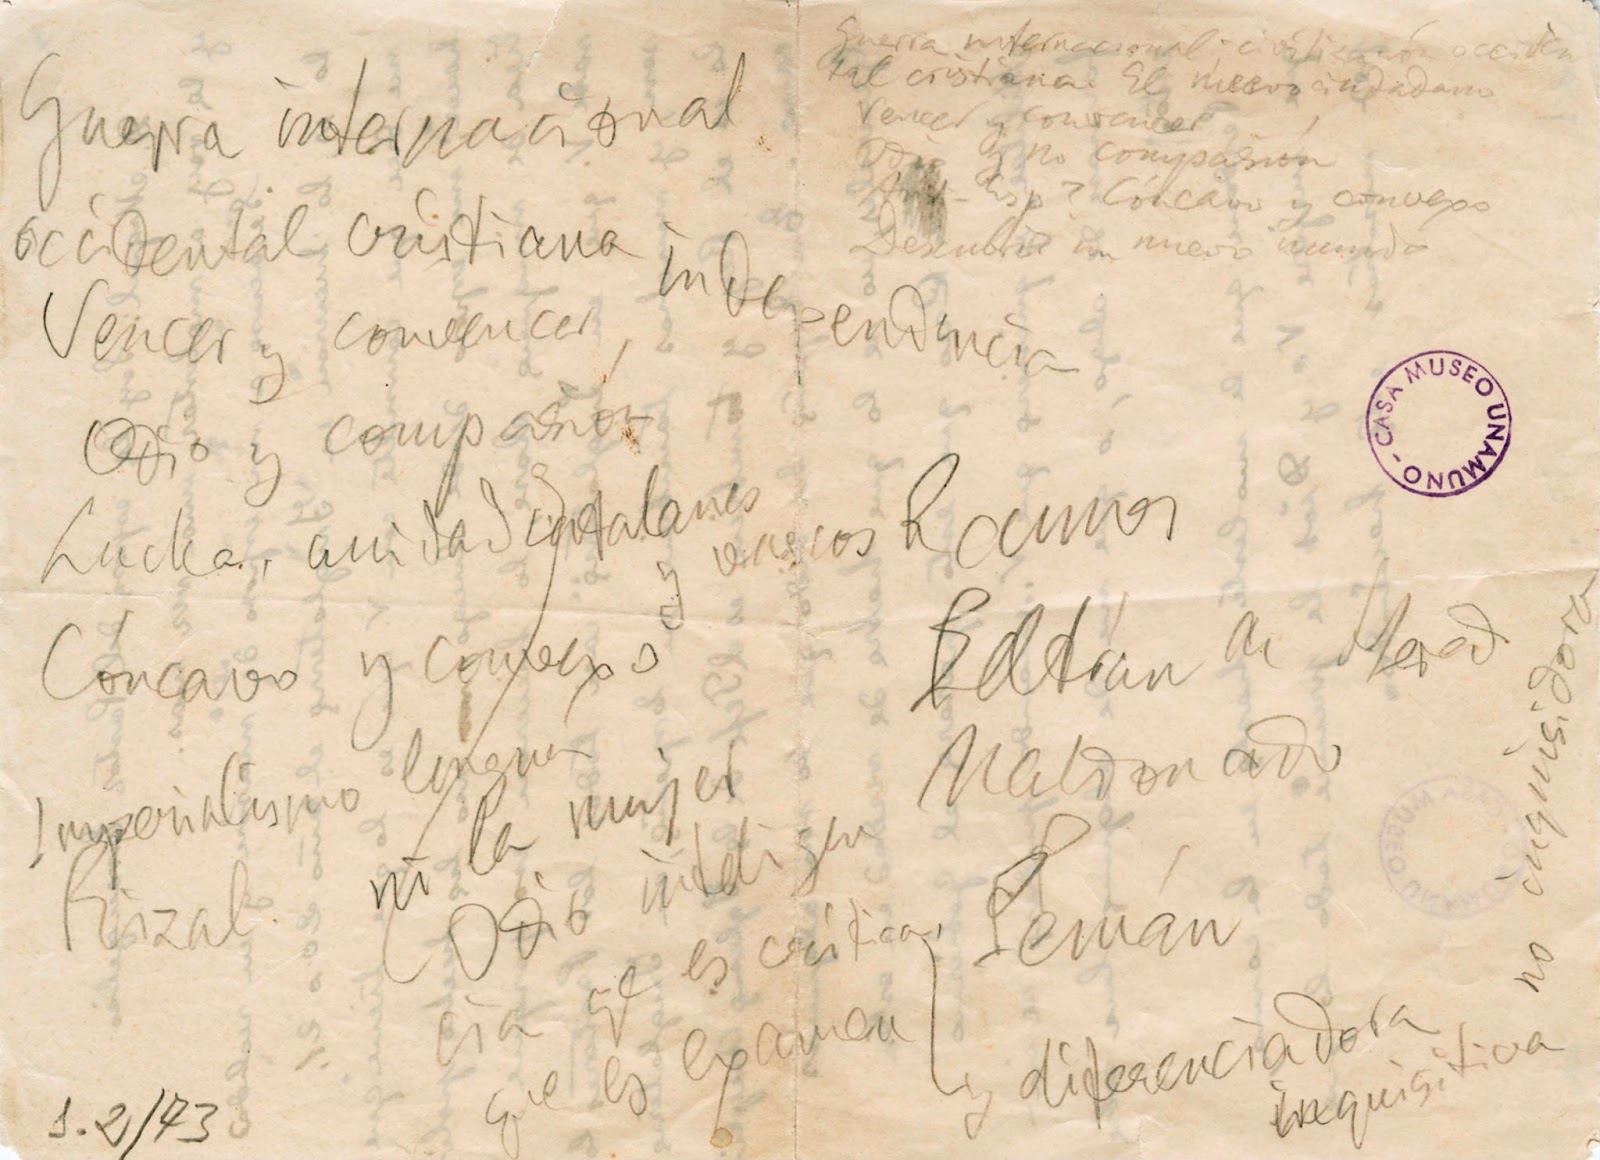 Guerra internacional
occidental cristiana independencia
Vencer y convencer,
Odio y compasión
Lucha, unidad catalanes y vascos
Cóncavo y convexo
Imperialismo lengua
Rizal. ni la mujer
Odio inteligen
cia qe es crítica,
que es examen
y diferenciadora
inquisitiva
no inquisidora
Ramos
Beltrán de Hered
Maldonado
Pemán
Guerra internacional-civilización occiden
tal cristiana. El nuevo ciudadano
Vencer y convencer
Odio y no compasión
Anti-Esp? Cóncavo y convexo
un nuevo mundo
CASA MUSEO UNAMUNO -
1.2/73